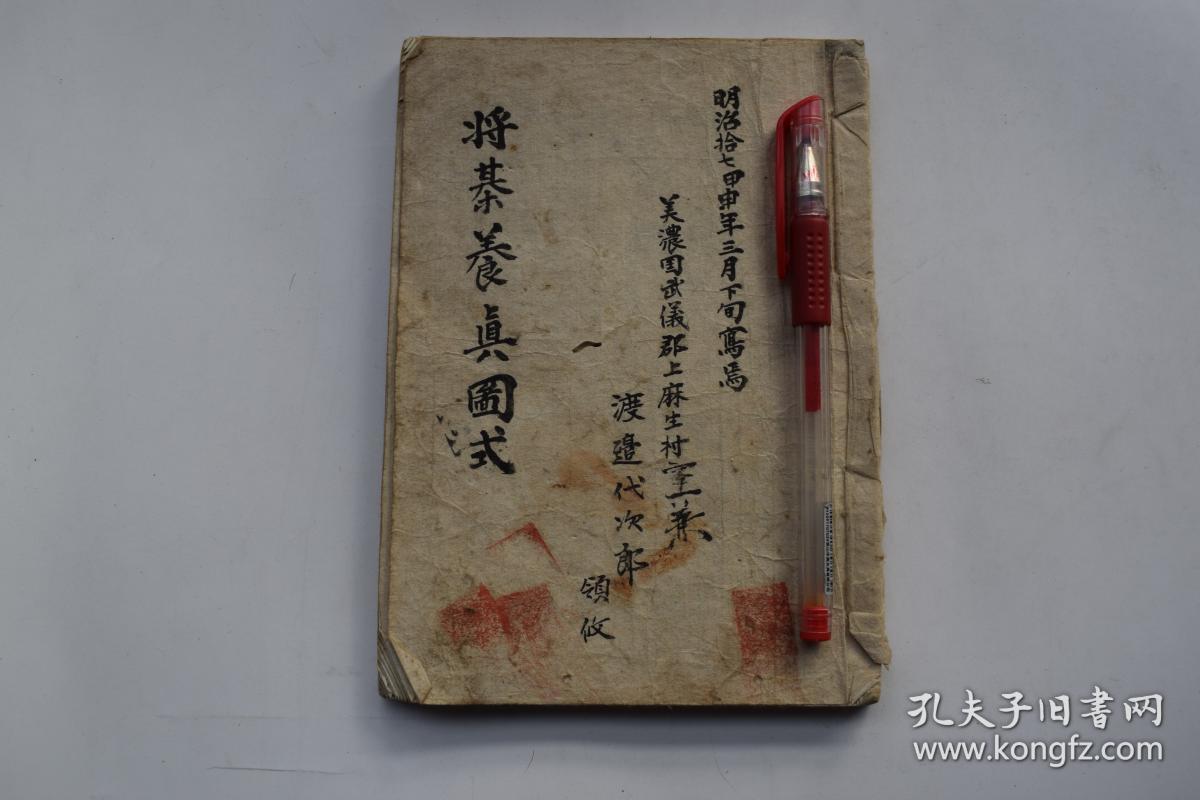 明治拾七甲申年三月下旬寫焉
美濃国武儀郡上麻生村
渡邉代次郎
領收
将棊養眞圖式
孔夫子旧書网
www.kongfz.com